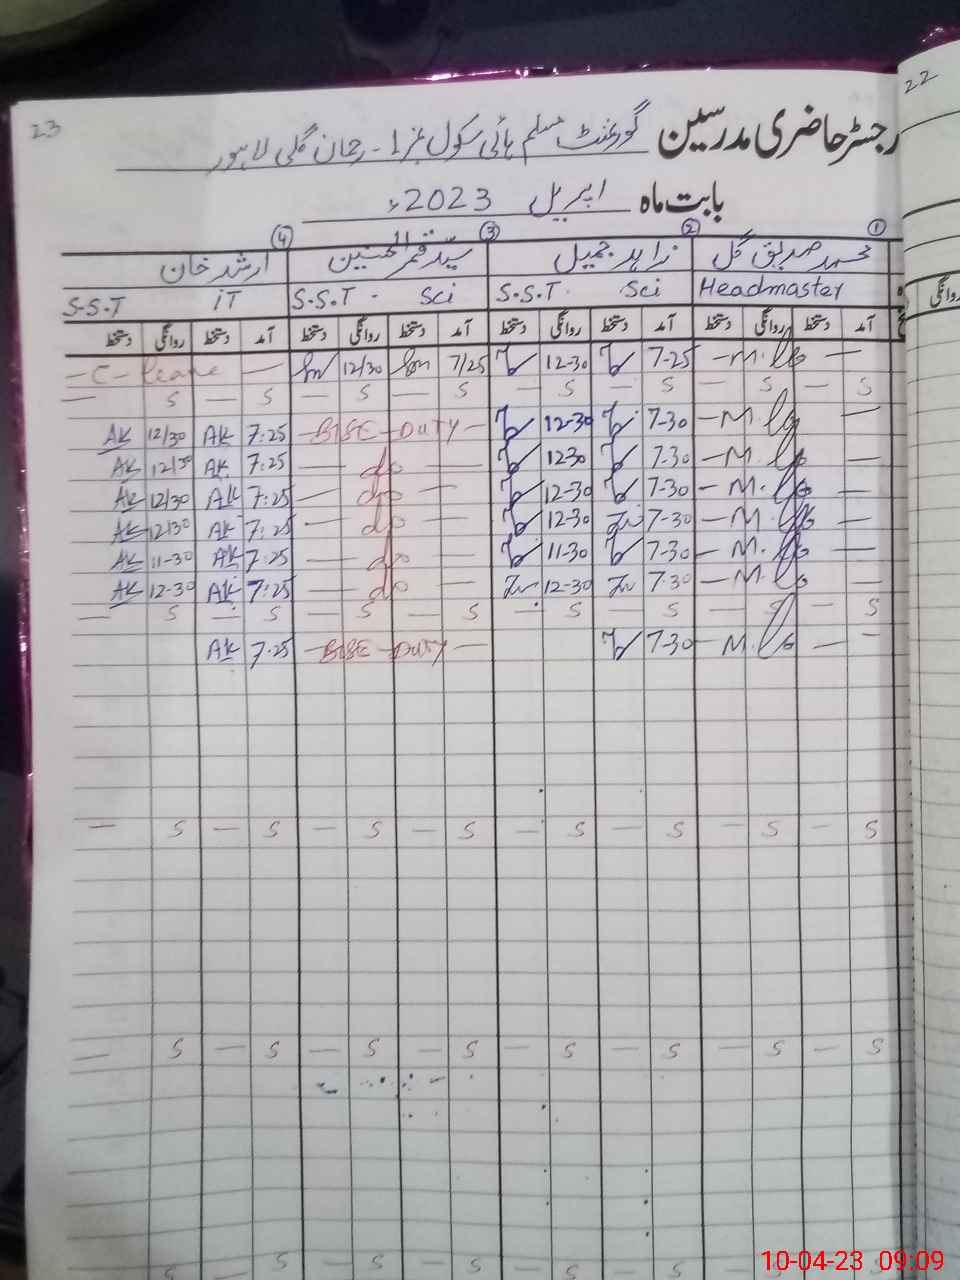 23
22
رجسٹر حاضری مدرسین گورنمنٹ مسلم ہائی سکول نمبر 1 - رحمان گلی لاہور
بابت ماہ اپریل 2023ء
① ② ③ ④
محمد صدیق گل زاہد جمیل سید قمر الحسنین ارشد خان
Headmaster S.S.T. Sci S.S.T. Sci S.S.T iT
روانگی
آمد دستخط روانگی دستخط آمد دستخط روانگی دستخط آمد دستخط روانگی دستخط آمد دستخط روانگی دستخط
— C - leave — 12/30 7/25 12-30 7-25 —
— S — S — S — S — S — S — S — S
AK 12/30 AK 7:25 — BISE — DUTY — 12-30 7-30 —
AK 12/30 AK 7:25 — do — 1230 7.30 —
AK 12/30 AK 7:25 — do — 12-30 7-30 —
AK 12/30 AK 7:25 — do — 12-30 7-30 —
AK 11-30 AK 7:25 — do — 11-30 7-30 —
AK 12-30 AK 7:25 — do — 12-30 7.30 —
— S — S — S — S — S — S — S — S
AK 7.25 — BISE — DUTY — 7-30 —
— S — S — S — S — S — S — S — S
— S — S — S — S — S — S — S — S
S — S — S — S — S — S — S
10-04-23 09:09